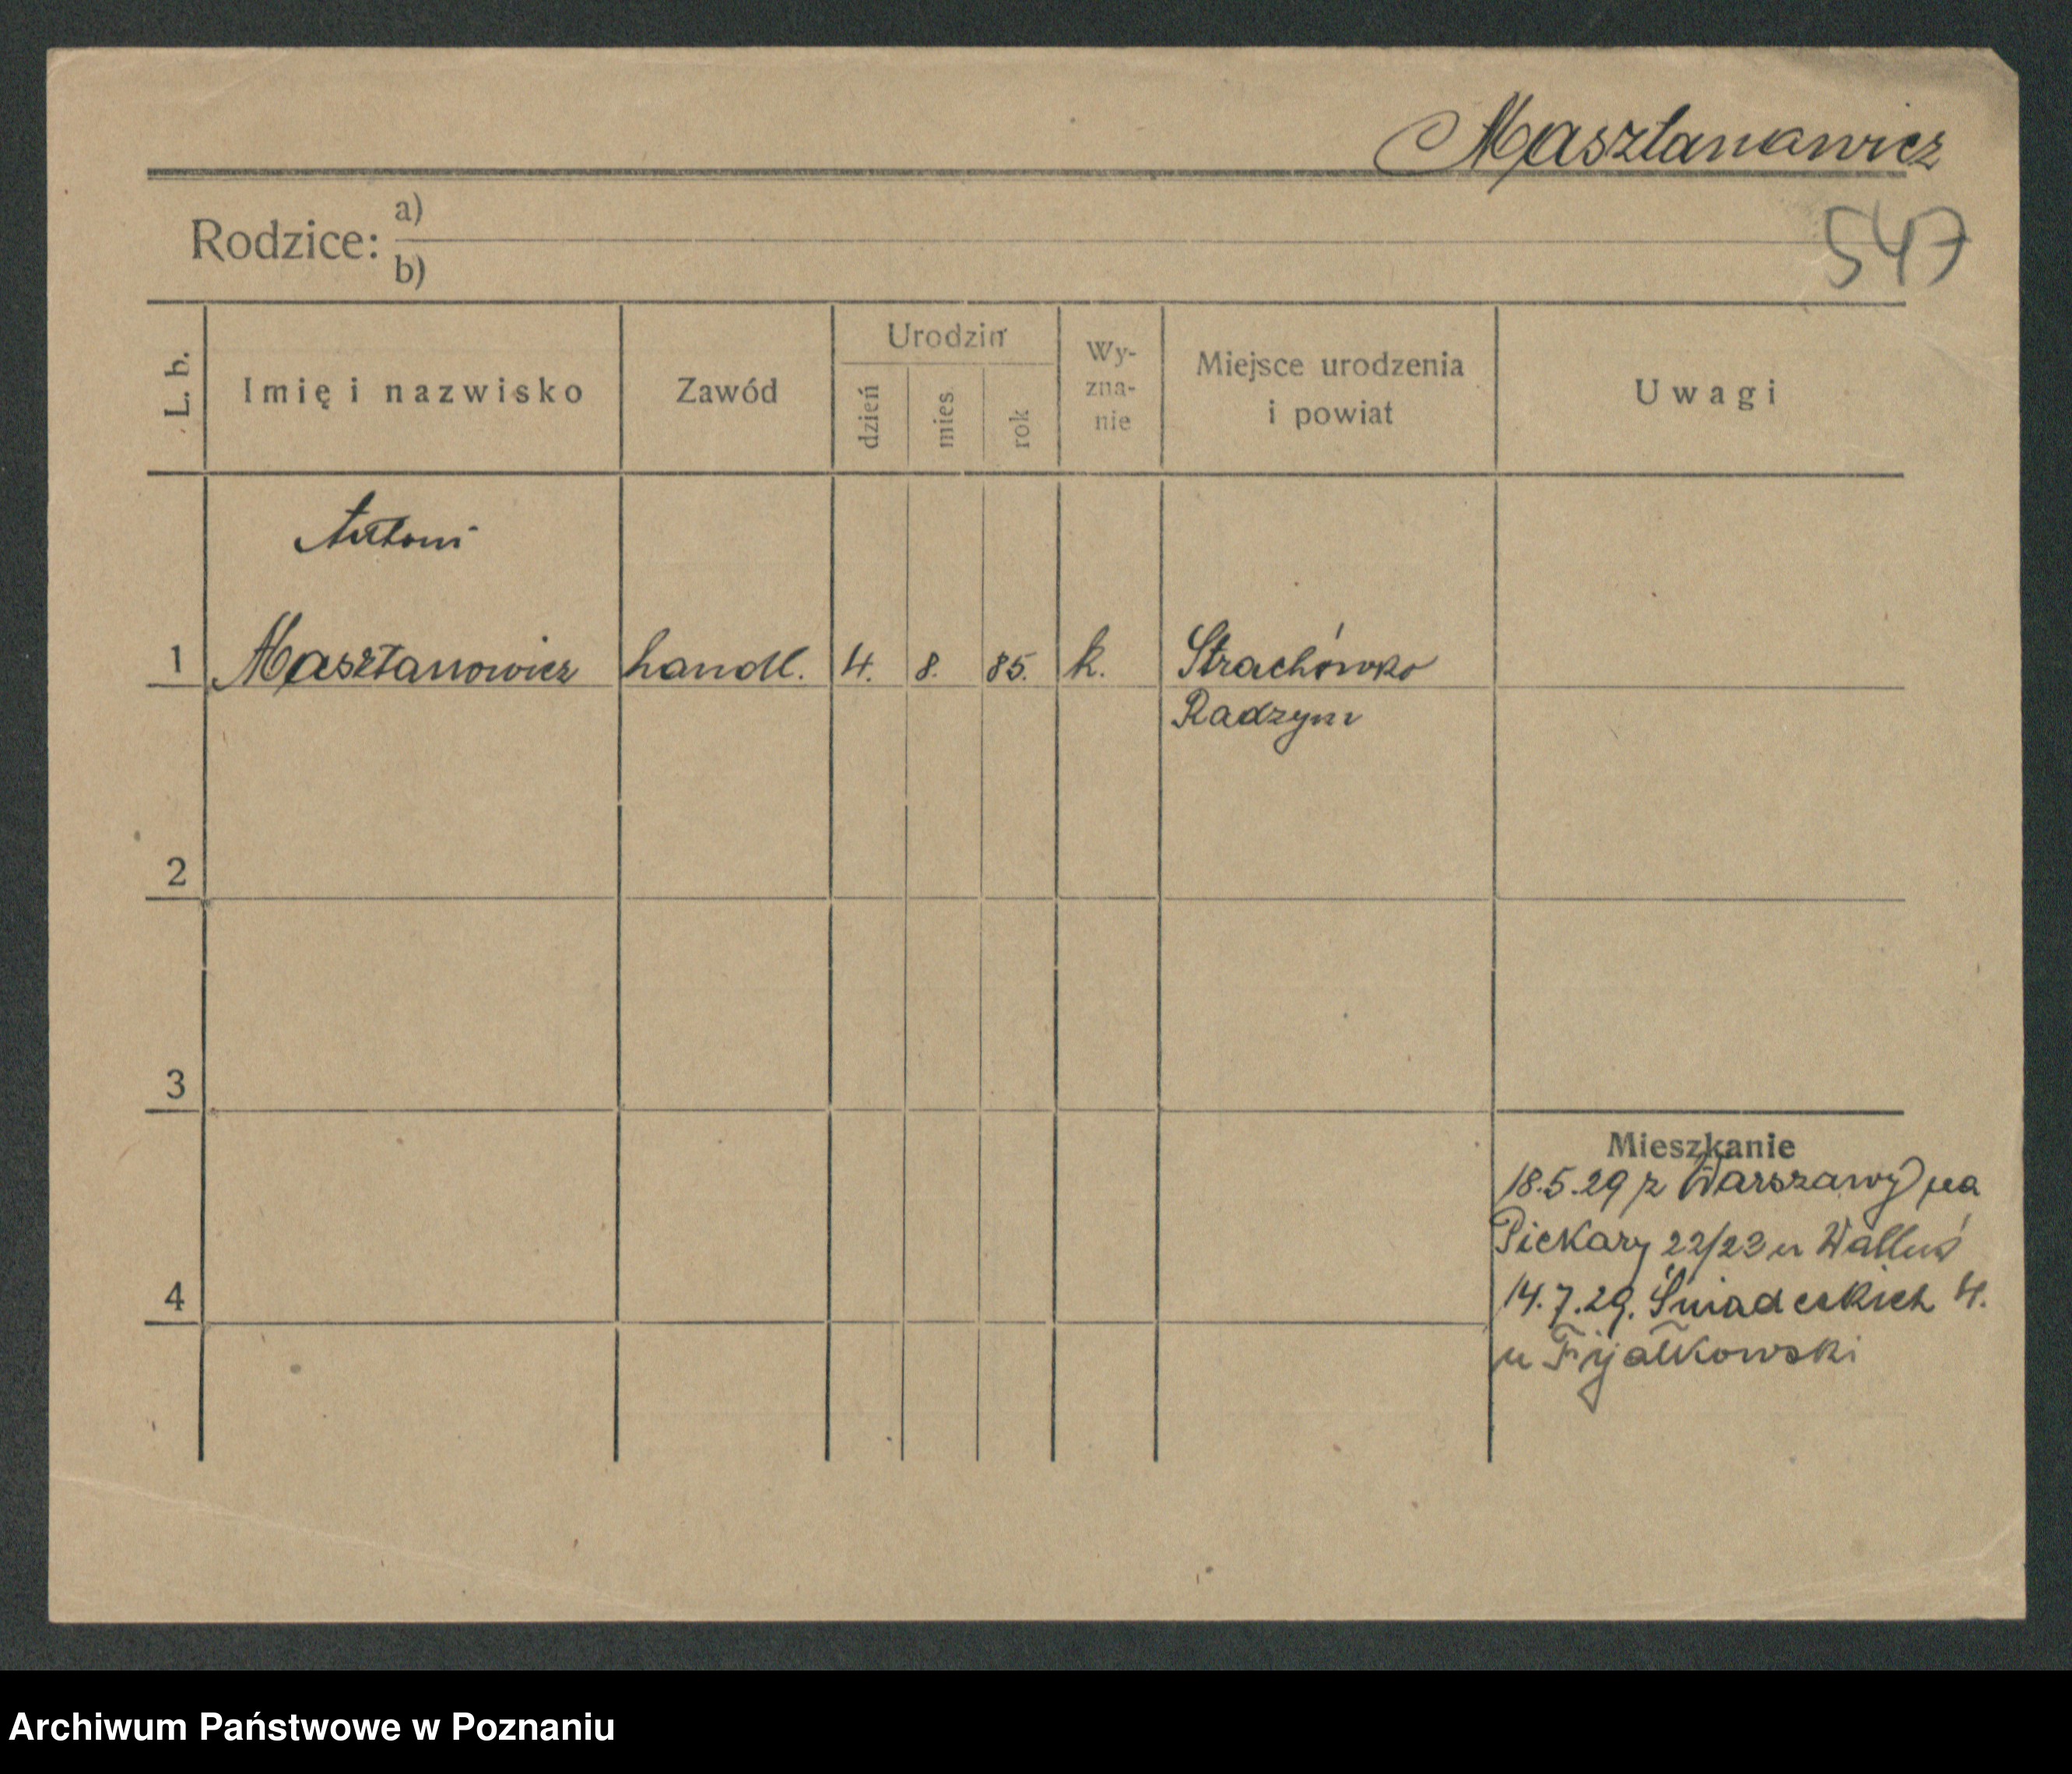 Masztanowicz
547
Rodzice: a)
b)
L. b.
Imię i nazwisko
Zawód
Urodzin
dzień
mies.
rok
Wy-
zna-
nie
Miejsce urodzenia
i powiat
Uwagi
Antoni
1 Masztanowicz handl. 4. 8. 85. k. Strachówko
Radzym
2
3
4
Mieszkanie
18.5.29 z Warszawy na
Piekary 22/23 u Walluś
14.7.29. Śniadeckich 4.
u Fijałkowski
Archiwum Państwowe w Poznaniu